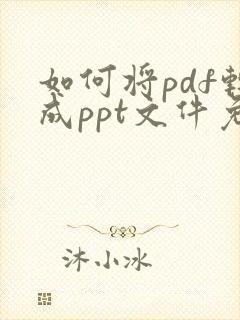 如何将pdf转
成ppt文件免
沐小冰